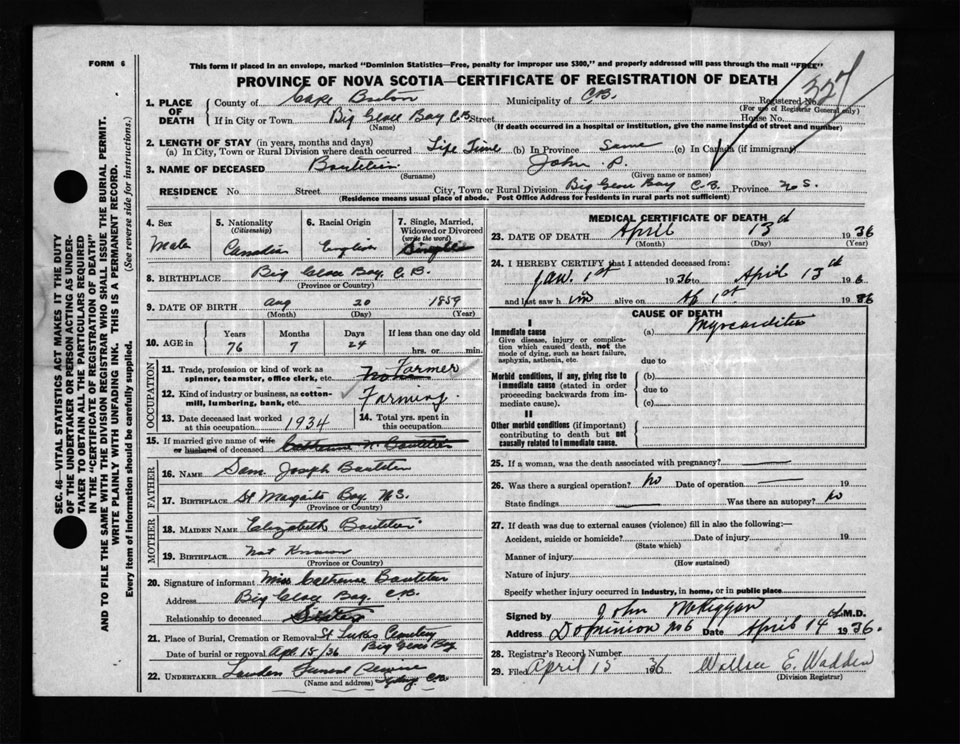 FORM 6
This form if placed in an envelope, marked "Dominion Statistics—Free, penalty for improper use $300," and properly addressed will pass through the mail "FREE"
PROVINCE OF NOVA SCOTIA—CERTIFICATE OF REGISTRATION OF DEATH
SEC. 46—VITAL STATISTICS ACT MAKES IT THE DUTY
OF THE UNDERTAKER OR PERSON ACTING AS UNDER-
TAKER TO OBTAIN ALL THE PARTICULARS REQUIRED
IN THE "CERTIFICATE OF REGISTRATION OF DEATH"
AND TO FILE THE SAME WITH THE DIVISION REGISTRAR WHO SHALL ISSUE THE BURIAL PERMIT.
WRITE PLAINLY WITH UNFADING INK. THIS IS A PERMANENT RECORD.
Every item of information should be carefully supplied. (See reverse side for instructions.)
1. PLACE OF DEATH County of Cape Breton Municipality of C.B. Registered No. 327
(For use of Registrar General only)
If in City or Town Big Glace Bay C.B. Street House No.
(Name) (If death occurred in a hospital or institution, give the name instead of street and number)
2. LENGTH OF STAY (in years, months and days)
(a) In City, Town or Rural Division where death occurred Life Time (b) In Province Same (c) In Canada (if immigrant)
3. NAME OF DECEASED Boutelier John P.
(Surname) (Given name or names)
RESIDENCE No Street City, Town or Rural Division Big Glace Bay C.B. Province N.S.
(Residence means usual place of abode. Post Office Address for residents in rural parts not sufficient)
4. Sex Male
5. Nationality (Citizenship) Canadian
6. Racial Origin English
7. Single, Married, Widowed or Divorced (write the word) Single
8. BIRTHPLACE Big Glace Bay, C.B.
(Province or Country)
9. DATE OF BIRTH Aug 20 1859
(Month) (Day) (Year)
10. AGE in Years 76 Months 7 Days 24 If less than one day old hrs. or min.
OCCUPATION
11. Trade, profession or kind of work as spinner, teamster, office clerk, etc. None Farmer
12. Kind of industry or business, as cotton-mill, lumbering, bank, etc. Farming
13. Date deceased last worked at this occupation. 1934
14. Total yrs. spent in this occupation.
15. If married give name of wife or husband of deceased
FATHER
16. NAME Sam Joseph Boutelier
17. BIRTHPLACE St Margaits Bay N.S.
(Province or Country)
MOTHER
18. MAIDEN NAME Elizabeth Boutelier
19. BIRTHPLACE Not Known
(Province or Country)
20. Signature of informant Miss Catherine Boutelier
Address Big Glace Bay. C.B.
Relationship to deceased Sister
21. Place of Burial, Cremation or Removal St Lukes Cemetery
Big Glace Bay
Date of burial or removal Apr 15/36
22. UNDERTAKER Funeral Service
(Name and address) C.B.
MEDICAL CERTIFICATE OF DEATH
23. DATE OF DEATH April 13th 1936
(Month) (Day) (Year)
24. I HEREBY CERTIFY that I attended deceased from:
Jan. 1st 1936 to April 13th 1936
and last saw him alive on Ap 1st 1936
CAUSE OF DEATH
I
Immediate cause (a) Myocarditis
Give disease, injury or complica-
tion which caused death, not the
mode of dying, such as heart failure,
asphyxia, asthenia, etc.
due to
Morbid conditions, if any, giving rise to (b)
immediate cause (stated in order due to
proceeding backwards from im-
mediate cause). (c)
II
Other morbid conditions (if important)
contributing to death but not
causally related to immediate cause.
25. If a woman, was the death associated with pregnancy?
26. Was there a surgical operation? No Date of operation 19
State findings Was there an autopsy? No
27. If death was due to external causes (violence) fill in also the following:—
Accident, suicide or homicide? Date of injury 19
(State which)
Manner of injury
(How sustained)
Nature of injury
Specify whether injury occurred in industry, in home, or in public place
Signed by John McKiggan M.D.
Address Dominion No 6 Date April 14 1936.
28. Registrar's Record Number
29. Filed April 15 1936 Wallace E. Wadden
(Division Registrar)